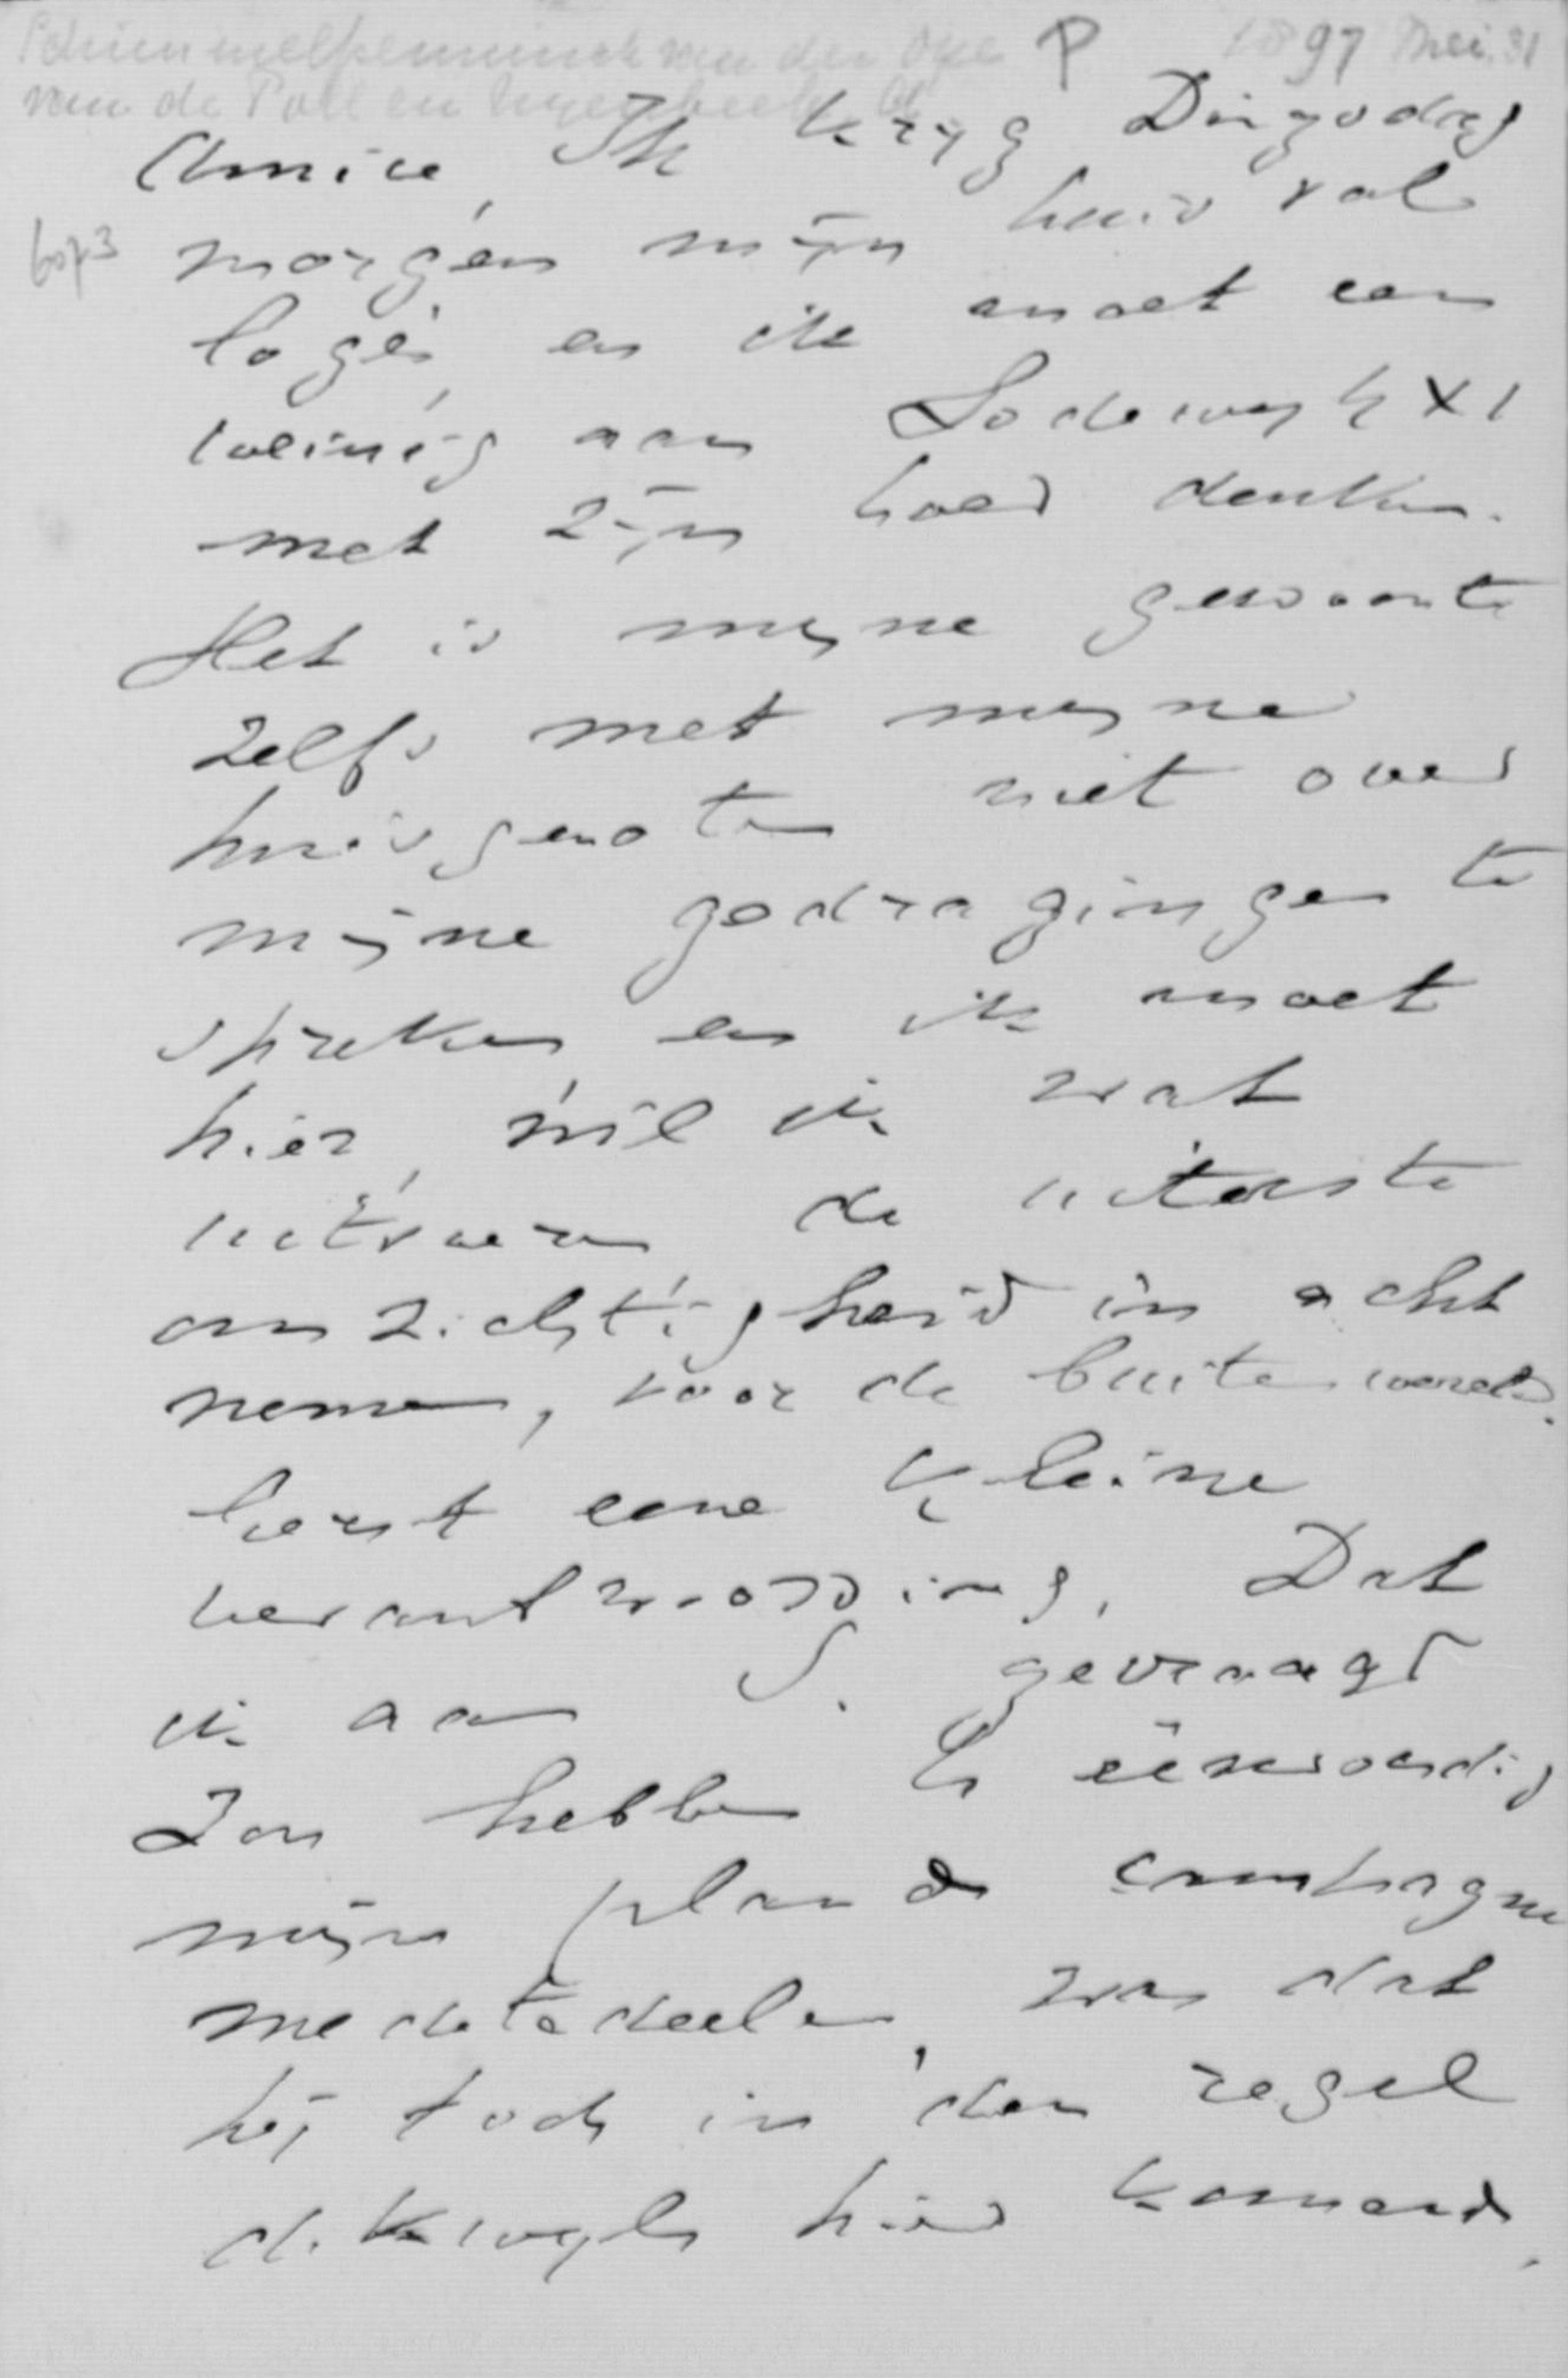 P 1897 Mei 31
van de Poll en
Amice, Ik kryg Dingsdag
6073
morgen mijn huis vol
logés, en ik moet een
weinig aan Lodewyk XI
met zijn hoed denken.
Het is myne gewoonte
zelfs met myne
huisgenoten niet over
mijne gedragingen te
spreken en ik moet
hier, wil ik wat
uitvoeren de uiterste
omzichtigheid in acht
nemen, voor de buitenwereld.
liefst eene kleine
verantwoording. Dat
ik aan S. gevraagd
zou hebben U eenvoudig
mijn plan de campagne
medetedeelen, was dat
hij toch in den regel
dikwyls hier komend,